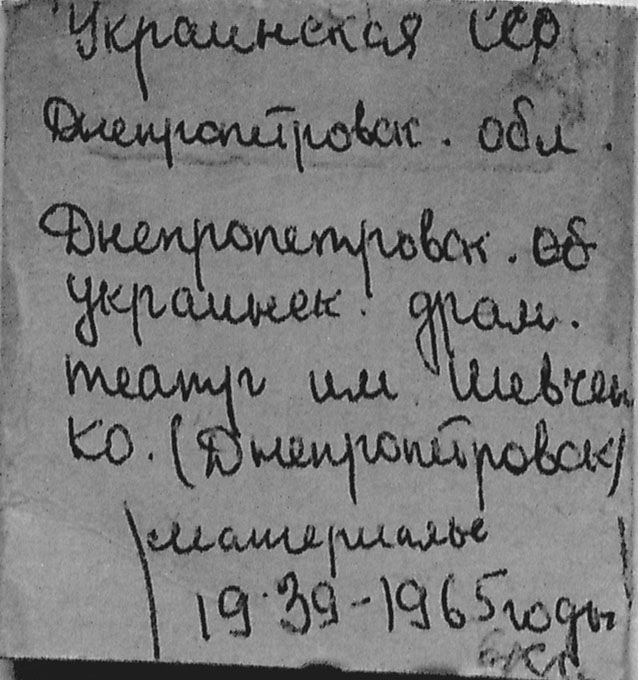 Украинская ССР
Днепропетровск. обл.
Днепропетровск. об
украинск. драм.
театр им Шевчен
ко. (Днепропетровск)
материалы
1939-1965 годы